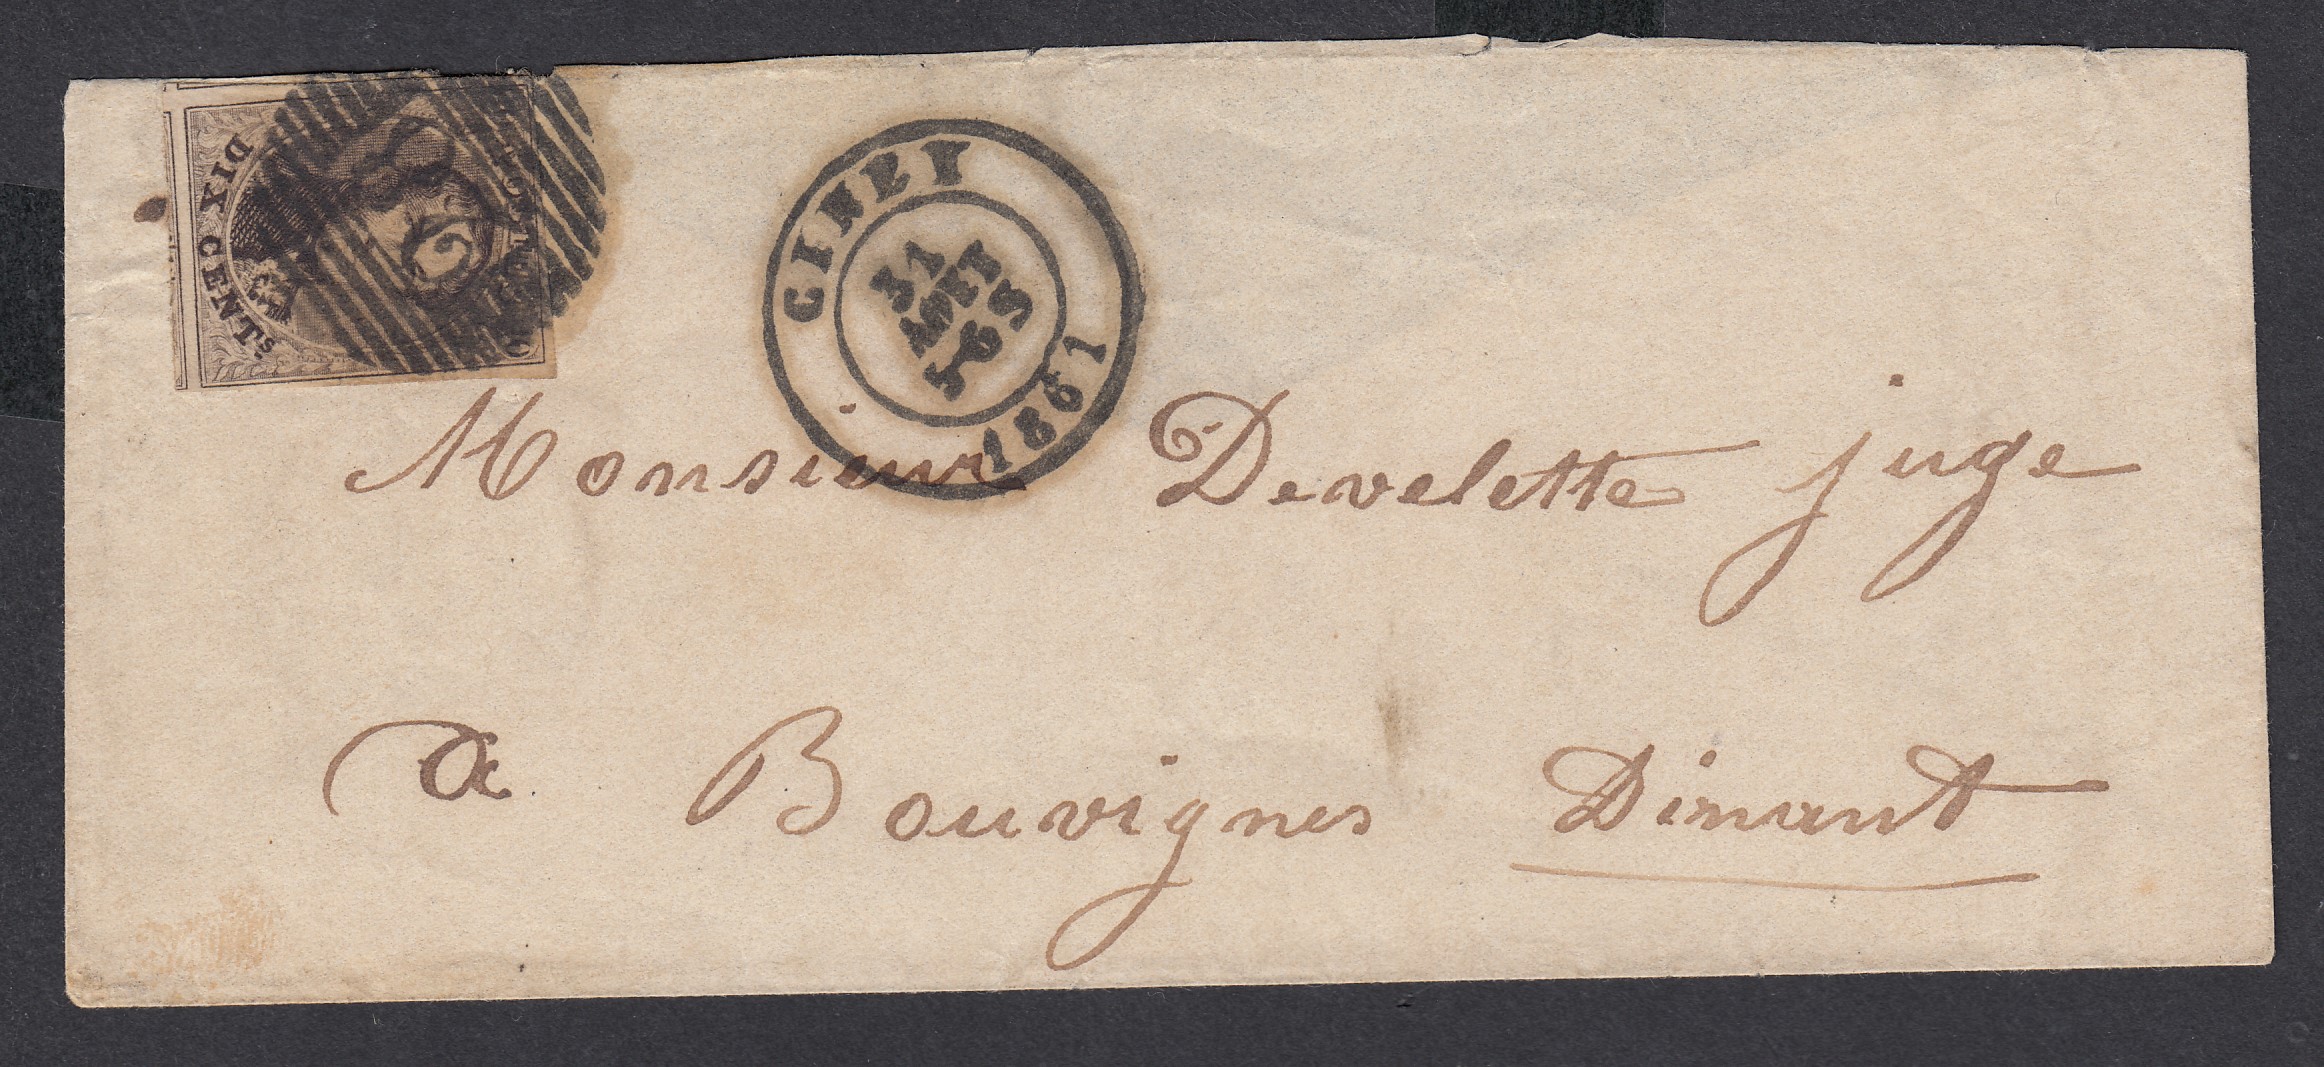 DIX CENTs.
CINEY
31
AOUT
5-6S
1861
Monsieur Develette juge
a Bouvignes Dinant